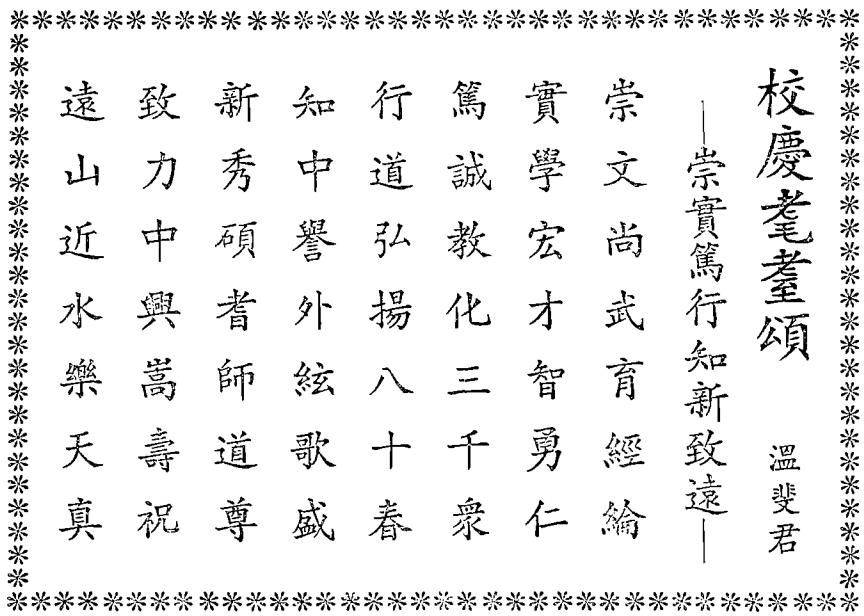 校慶耄耋頌 溫斐君
—崇實篤行知新致遠—
崇文尚武育經綸
實學宏才智勇仁
篤誠教化三千衆
行道弘揚八十春
知中譽外絃歌盛
新秀碩耆師道尊
致力中興嵩壽祝
遠山近水樂天真